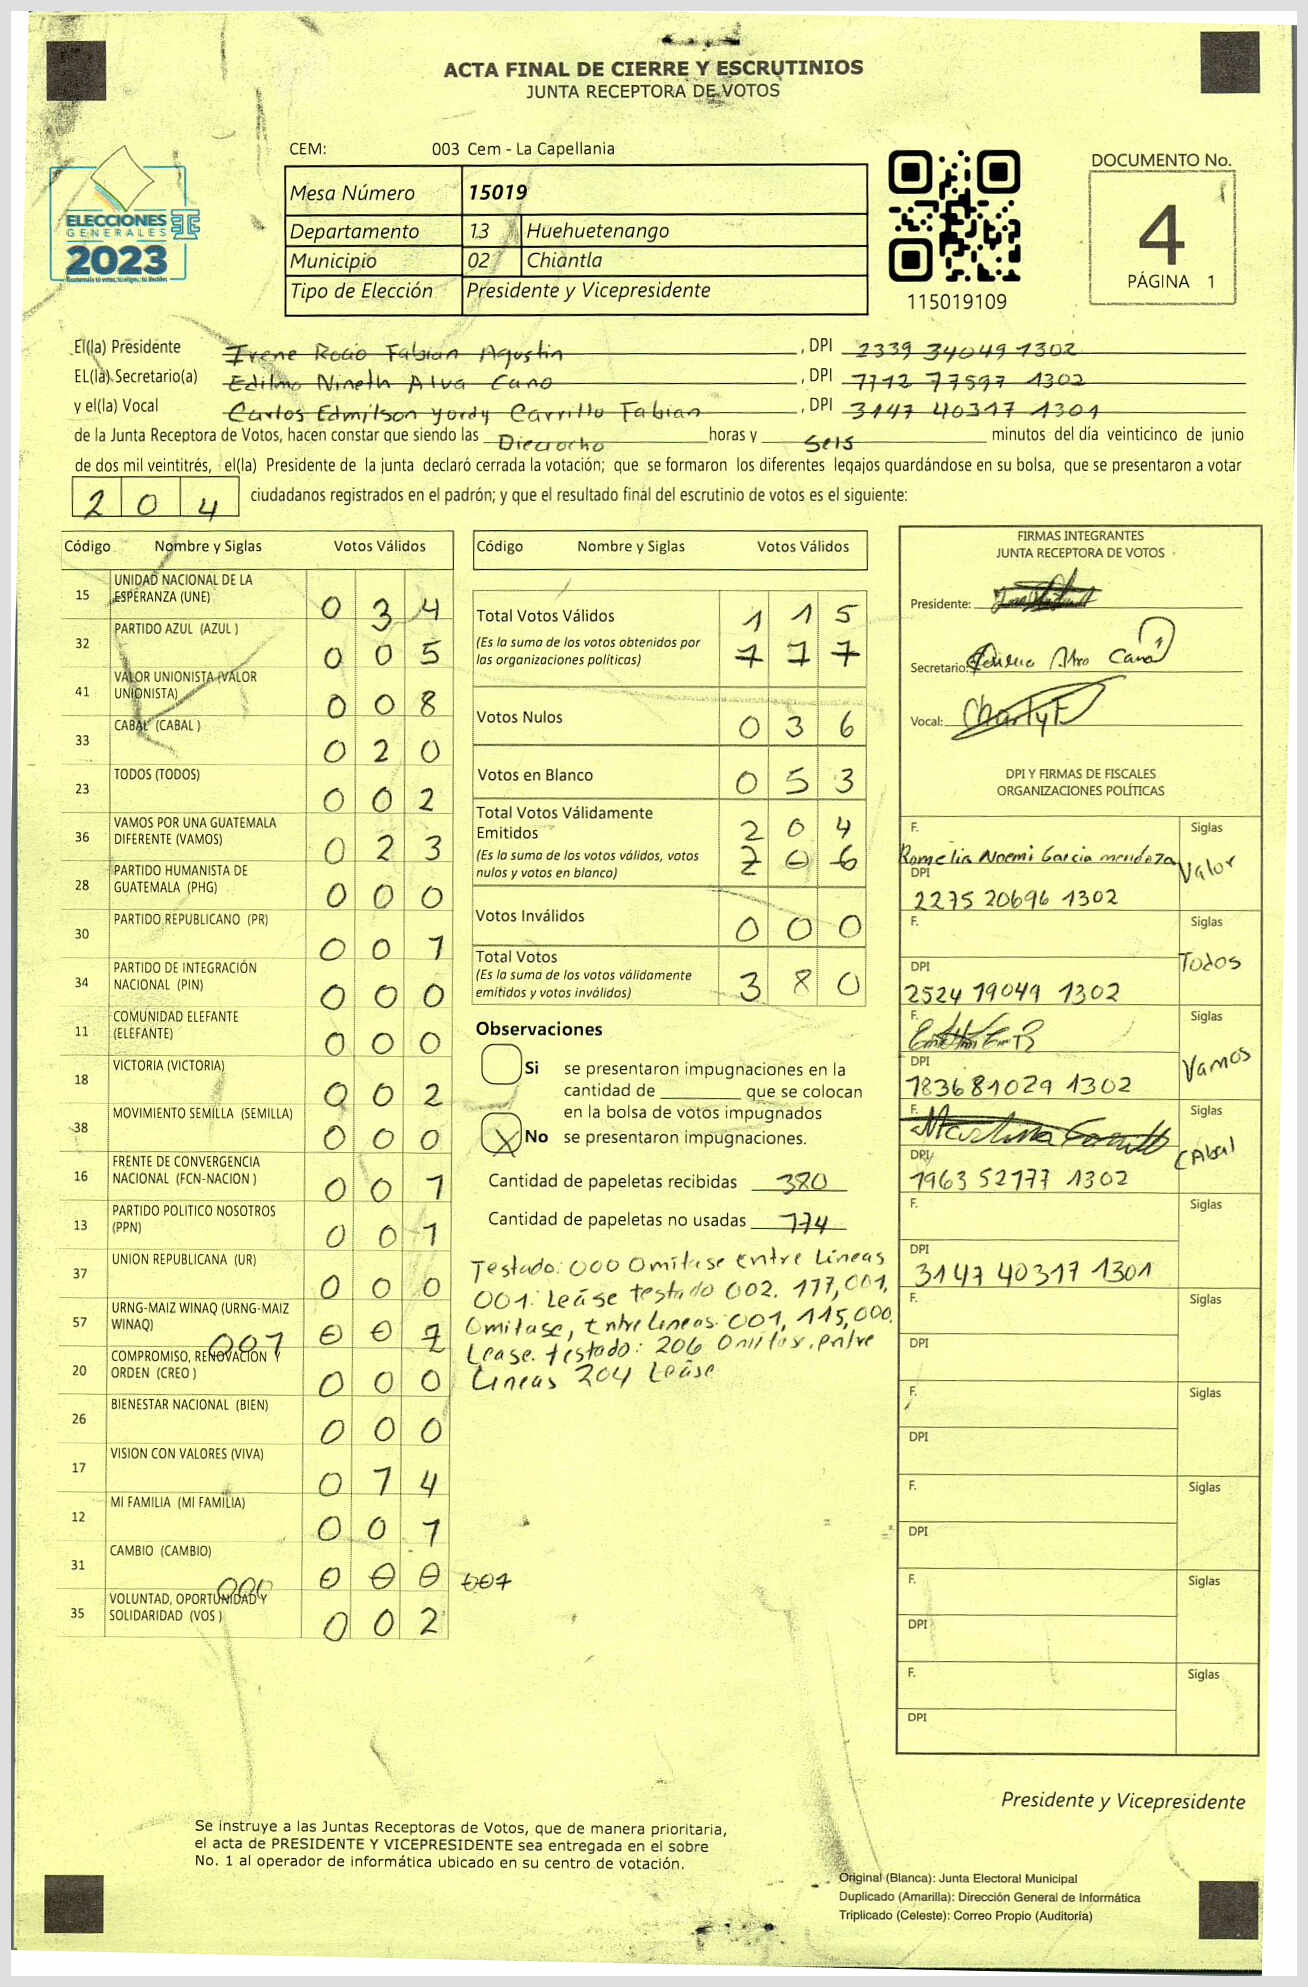 ACTA FINAL DE CIERRE Y ESCRUTINIOS
JUNTA RECEPTORA DE VOTOS
CEM: 003 Cem - La Capellania
Mesa Número 15019
Departamento 13 Huehuetenango
Municipio 02 Chiantla
Tipo de Elección Presidente y Vicepresidente
ELECCIONES
GENERALES
2023
115019109
DOCUMENTO No.
4
PÁGINA 1
El(la) Presidente Irene Rocio Fabian Agustin, DPI 2339 34049 1302
EL(la) Secretario(a) Edilma Nineth Alva Cano, DPI 7712 77597 1302
y el(la) Vocal Carlos Edmilson yordy Carrillo Fabian, DPI 3147 40317 1301
de la Junta Receptora de Votos, hacen constar que siendo las Dieciocho horas y Seis minutos del día veinticinco de junio
de dos mil veintitrés, el(la) Presidente de la junta declaró cerrada la votación; que se formaron los diferentes legajos guardándose en su bolsa, que se presentaron a votar
204 ciudadanos registrados en el padrón; y que el resultado final del escrutinio de votos es el siguiente:
Código Nombre y Siglas Votos Válidos
15 UNIDAD NACIONAL DE LA ESPERANZA (UNE) 0 3 4
32 PARTIDO AZUL (AZUL ) 0 0 5
41 VALOR UNIONISTA (VALOR UNIONISTA) 0 0 8
33 CABAL (CABAL ) 0 2 0
23 TODOS (TODOS) 0 0 2
36 VAMOS POR UNA GUATEMALA DIFERENTE (VAMOS) 0 2 3
28 PARTIDO HUMANISTA DE GUATEMALA (PHG) 0 0 0
30 PARTIDO REPUBLICANO (PR) 0 0 1
34 PARTIDO DE INTEGRACIÓN NACIONAL (PIN) 0 0 0
11 COMUNIDAD ELEFANTE (ELEFANTE) 0 0 0
18 VICTORIA (VICTORIA) 0 0 2
38 MOVIMIENTO SEMILLA (SEMILLA) 0 0 0
16 FRENTE DE CONVERGENCIA NACIONAL (FCN-NACION ) 0 0 1
13 PARTIDO POLITICO NOSOTROS (PPN) 0 0 1
37 UNION REPUBLICANA (UR) 0 0 0
57 URNG-MAIZ WINAQ (URNG-MAIZ WINAQ) 001 0 0 2
20 COMPROMISO, RENOVACION Y ORDEN (CREO ) 0 0 0
26 BIENESTAR NACIONAL (BIEN) 0 0 0
17 VISION CON VALORES (VIVA) 0 1 4
12 MI FAMILIA (MI FAMILIA) 0 0 1
31 CAMBIO (CAMBIO) 000 0 0 0 001
35 VOLUNTAD, OPORTUNIDAD Y SOLIDARIDAD (VOS ) 0 0 2
Código Nombre y Siglas Votos Válidos
Total Votos Válidos 1 1 5
(Es la suma de los votos obtenidos por
las organizaciones políticas) 1 1 7
Votos Nulos 0 3 6
Votos en Blanco 0 5 3
Total Votos Válidamente
Emitidos 2 0 4
(Es la suma de los votos válidos, votos
nulos y votos en blanco) 2 0 6
Votos Inválidos 0 0 0
Total Votos
(Es la suma de los votos válidamente
emitidos y votos inválidos) 3 8 0
Observaciones
Si se presentaron impugnaciones en la
cantidad de que se colocan
en la bolsa de votos impugnados
X No se presentaron impugnaciones.
Cantidad de papeletas recibidas 380
Cantidad de papeletas no usadas 174
Testado: 000 Omitase entre Lineas
001: Leáse testado 002. 117, 001,
Omitase, Entre lineas: 001, 115, 000.
Lease. testado: 206 Omitase, entre
Lineas 204 Leáse
FIRMAS INTEGRANTES
JUNTA RECEPTORA DE VOTOS
Presidente:
Secretario: Cano
Vocal: CharlyF
DPI Y FIRMAS DE FISCALES
ORGANIZACIONES POLÍTICAS
F. Siglas
Romelia Noemi Garcia mendoza Valor
DPI
2275 20696 1302
F. Siglas
Todos
DPI
2524 19049 1302
F. Siglas
Vamos
DPI
1836 81029 1302
F. Siglas
CAbal
DPI
1963 52177 1302
F. Siglas
DPI
3147 40317 1301
F. Siglas
DPI
F. Siglas
DPI
F. Siglas
DPI
F. Siglas
DPI
F. Siglas
DPI
Presidente y Vicepresidente
Se instruye a las Juntas Receptoras de Votos, que de manera prioritaria,
el acta de PRESIDENTE Y VICEPRESIDENTE sea entregada en el sobre
No. 1 al operador de informática ubicado en su centro de votación.
Original (Blanca): Junta Electoral Municipal
Duplicado (Amarilla): Dirección General de Informática
Triplicado (Celeste): Correo Propio (Auditoría)